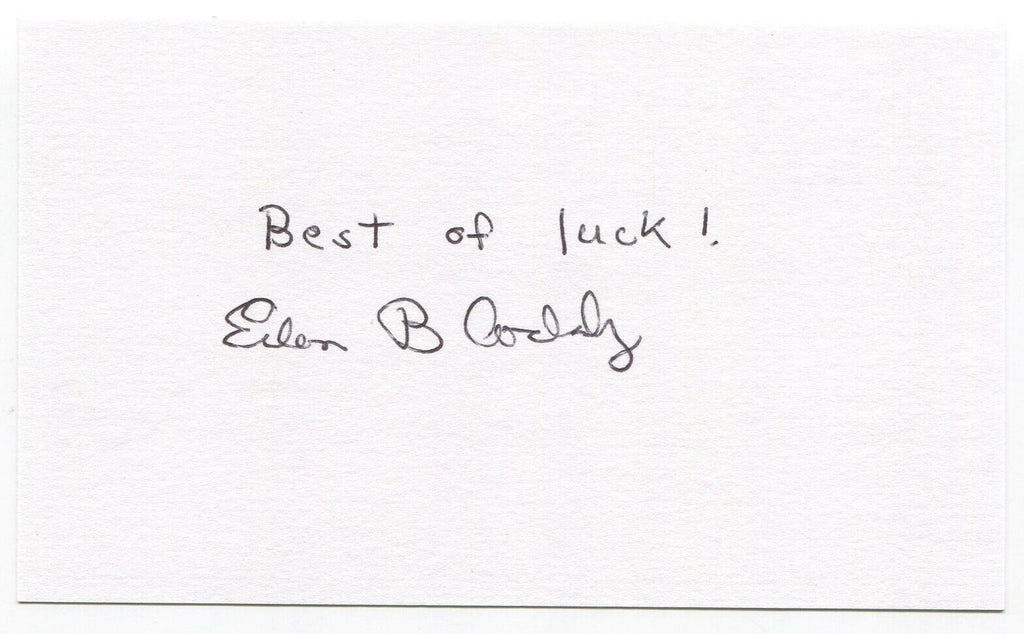 Best of luck!
Eileen B